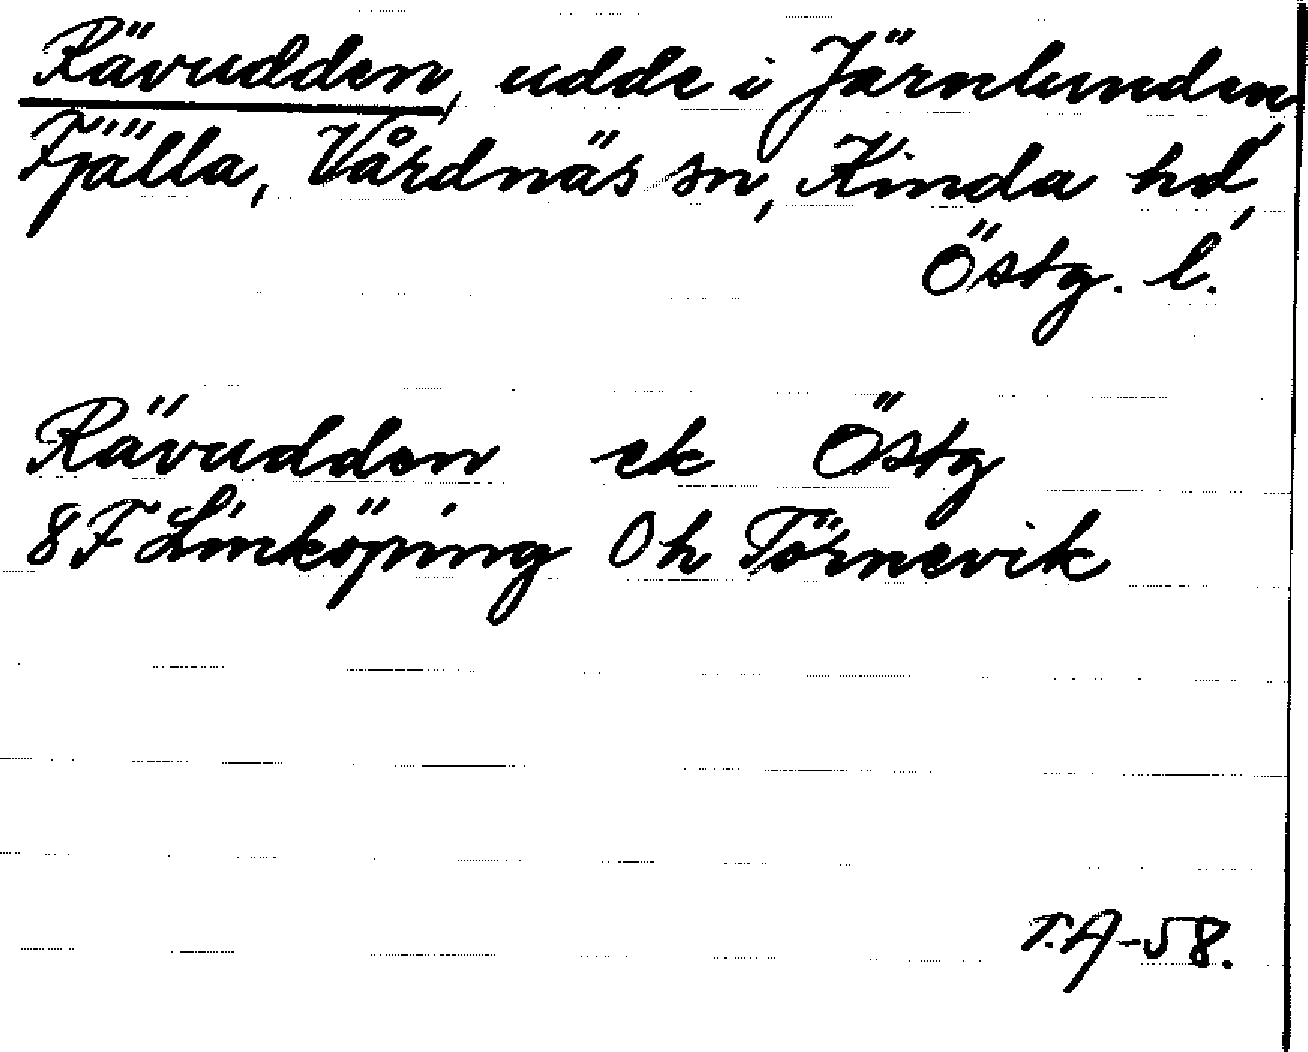 Rävudden, udde i Järnlunden,
Fjälla, Vårdnäs sn, Kinda hd,
Östg. l.
Rävudden ek Östg
8F Linköping Oh Törnevik
T.A-58.